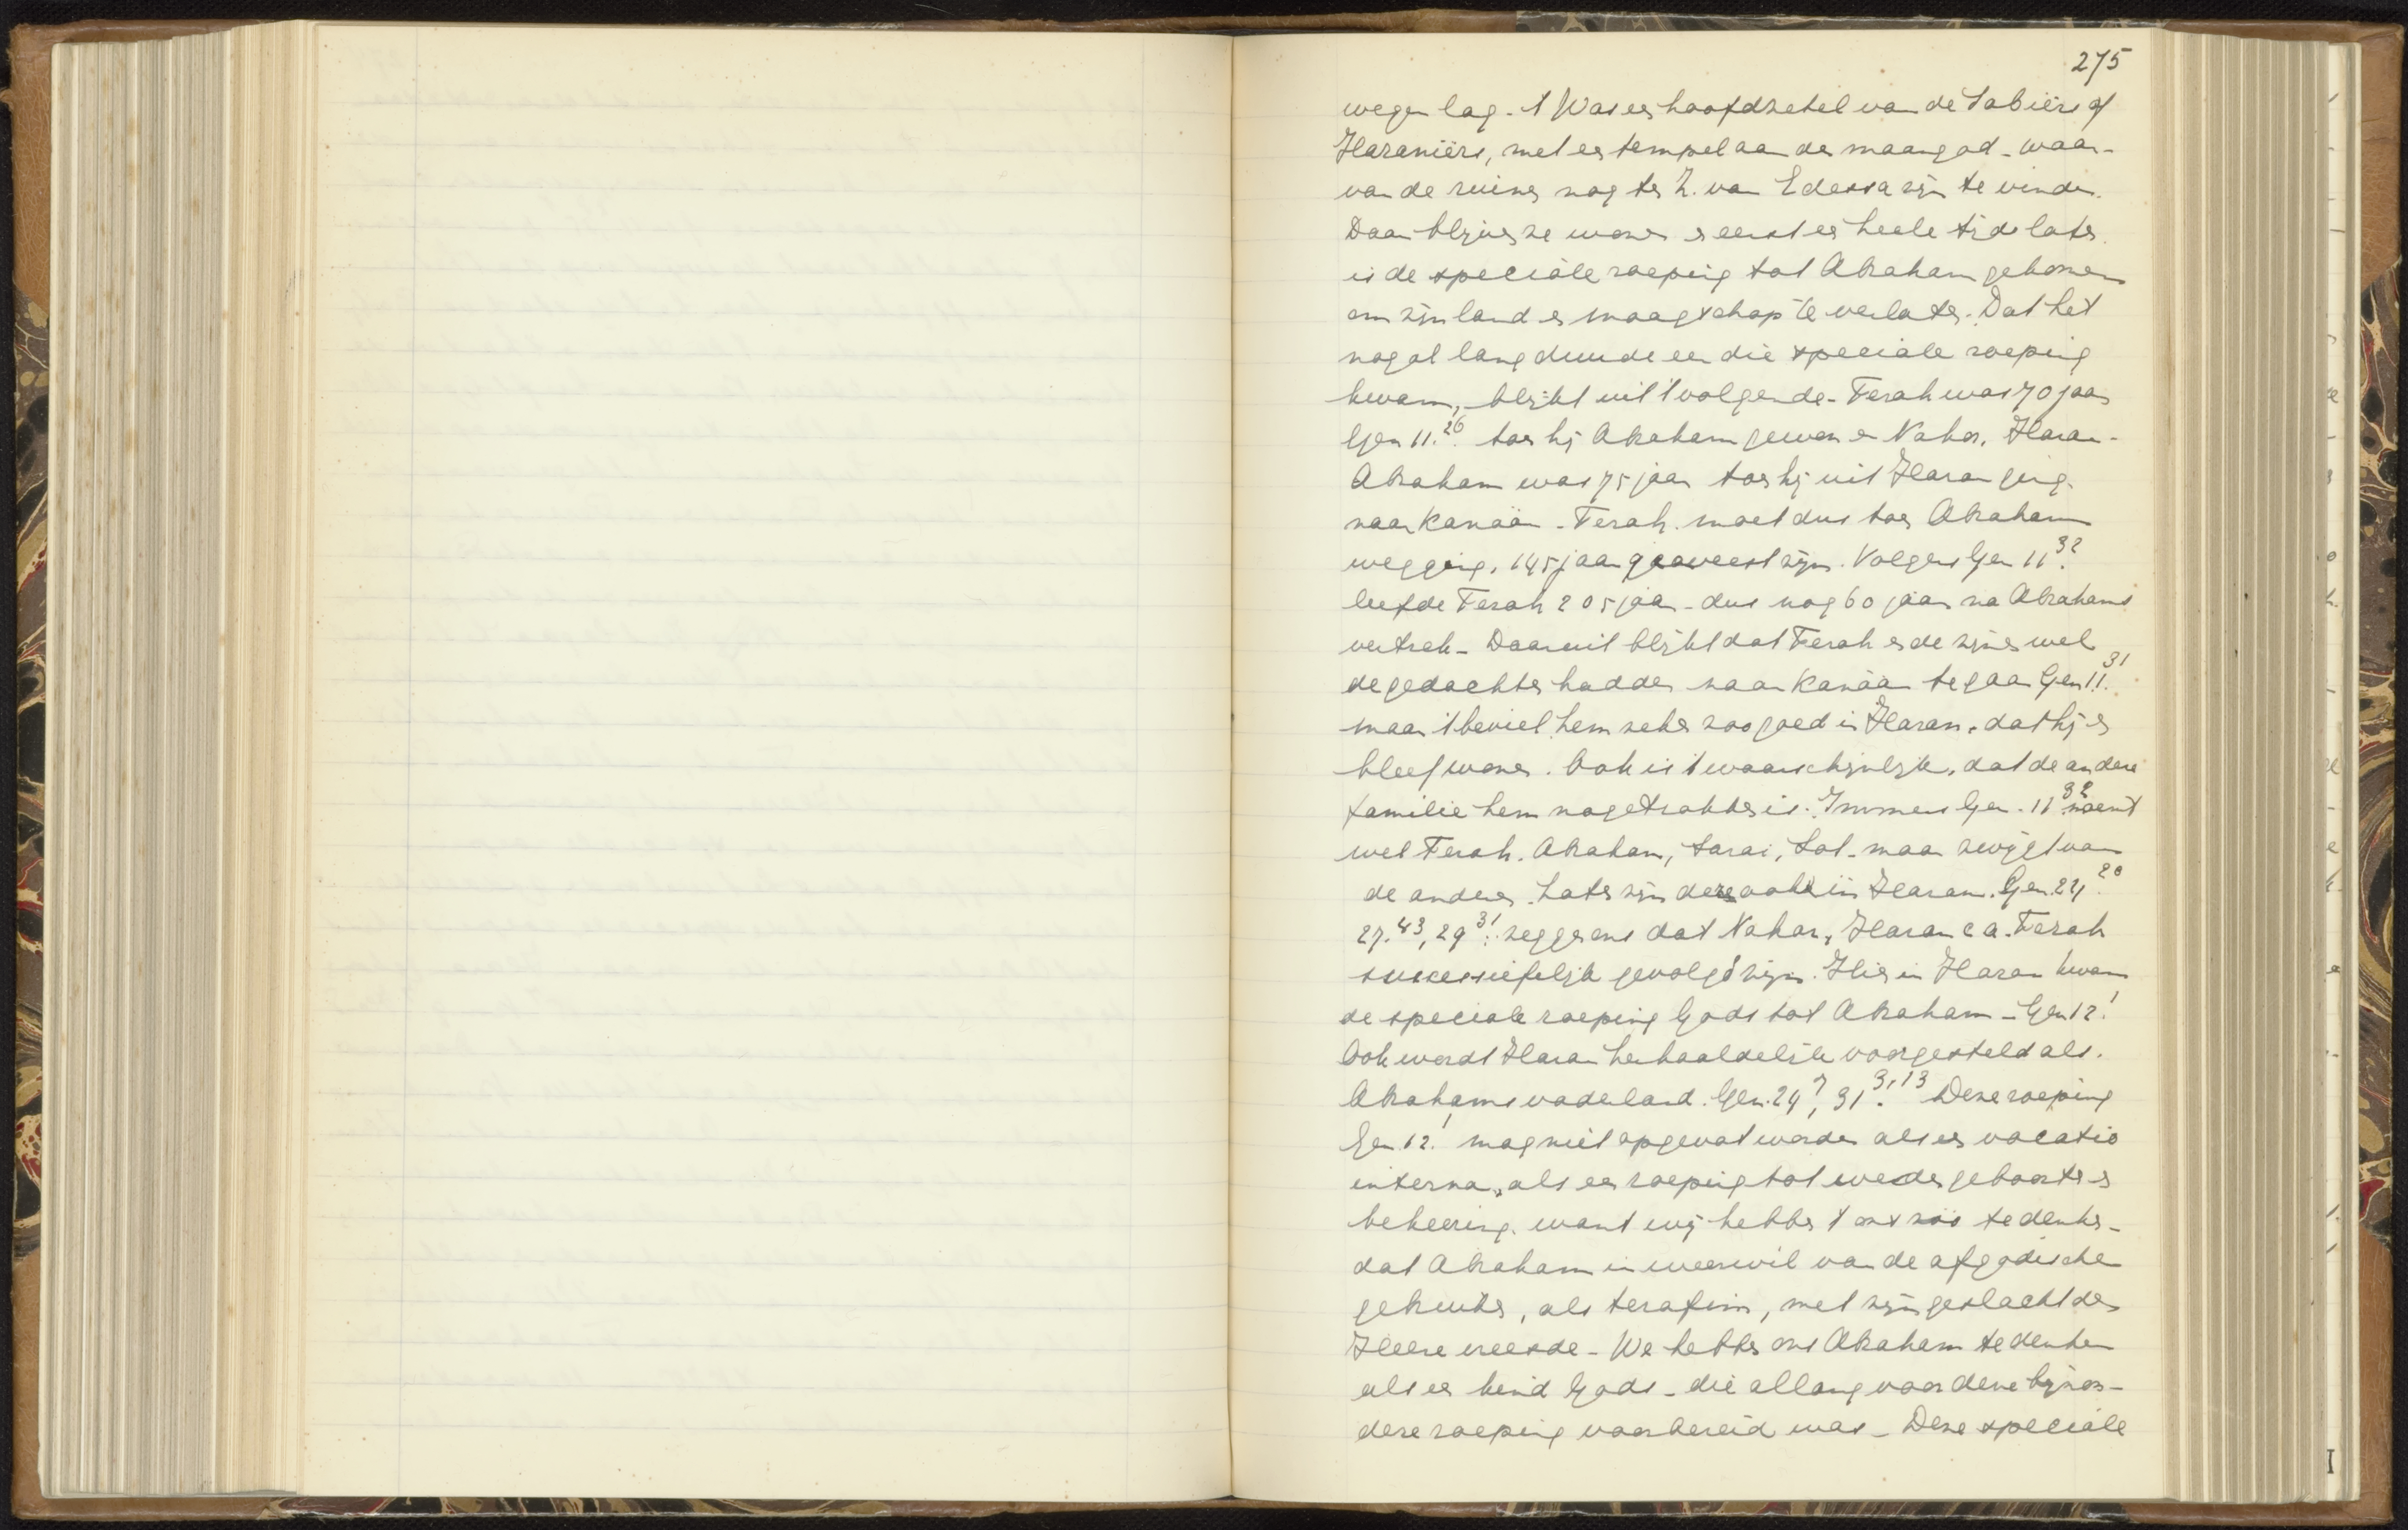 275
wegen lag. 't Was een hoofdzetel van de Sabiërs of
Haraniërs, met een tempel aan den maangod - waar-
van de ruines nog ten Z. van Edessa zijn te vinden.
Daar blijven ze wonen en eerst een heele tijd later
is de speciale roeping tot Abraham gekomen
om zijn land en maagschap te verlaten. Dat het
nogal lang duurde eer die speciale roeping
kwam, blijkt uit 't volgende. Terah was 70 jaar
Gen 11.26 toen hij Abraham gewon en Nahor, Haran.
Abraham was 75 jaar toen hij uit Haran ging
naar Kanaän. Terah moet dus toen Abraham
wegging, 145 jaar geweest zijn. Volgens Gen 11.32
leefde Terah 205 jaar - dus nog 60 jaar na Abrahams
vertrek - Daaruit blijkt dat Terah en de zijnen wel
de gedachten hadden naar Kanaän te gaan Gen 11.31
maar 't beviel hem zeker zoo goed in Haran, dat hij er
bleef wonen. Ook is 't waarschijnlijk, dat de andere
familie hem nagetrokken is. Immers Gen. 11.32 noemt
wel Terah, Abraham, Sarai, Lot - maar zwijgt van
de anderen. Later zijn deze ook in Haran. Gen. 24.20
27.43, 29.31 zeggen ons dat Nahor, Haran c.a. Terah
successiefelijk gevolgd zijn. Hier in Haran kwam
de speciale roeping Gods tot Abraham - Gen 12.1
Ook wordt Haran herhaaldelijk voorgesteld als
Abrahams vaderland. Gen. 24.7, 31.3,13 Deze roeping
Gen. 12.1 mag niet opgevat worden als een vocatio
interna, als een roeping tot wedergeboorte en
bekeering. want wij hebben 't ons zóó te denken -
dat Abraham in weerwil van de afgodische
gebruiken, als terafim, met zijn geslacht den
Heere vreesde - We hebben ons Abraham te denken
als een kind Gods - die allang voor deze bijzon-
dere roeping voorbereid was - Deze speciale